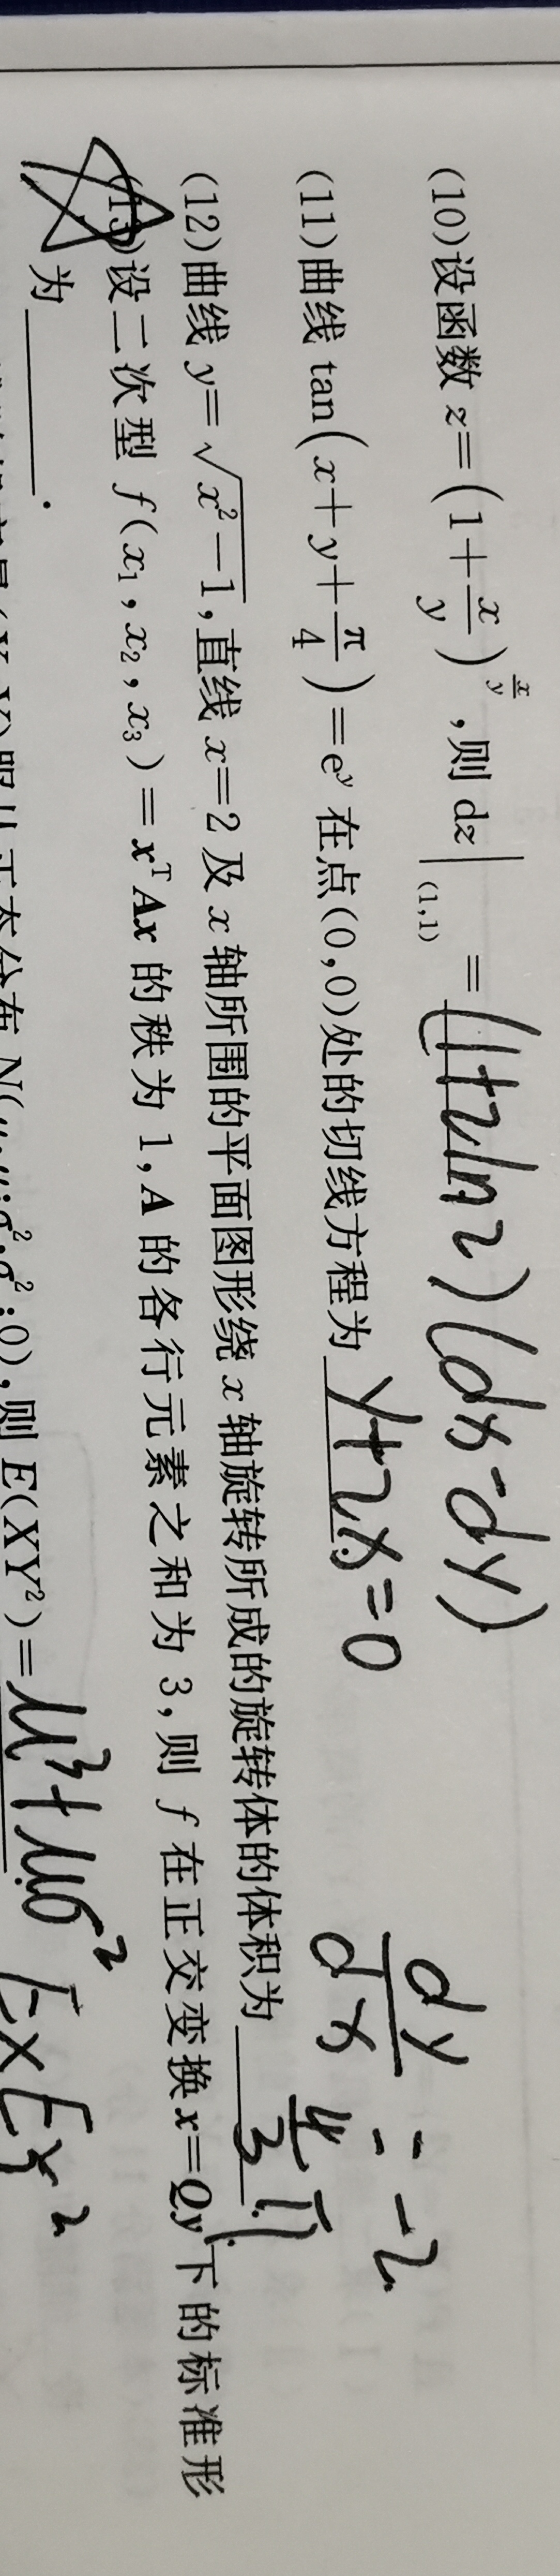 (10)设函数 z=(1+x/y)^(x/y),则 dz|(1,1) =(1+2ln2)(dx-dy)
(11)曲线 tan(x+y+π/4)=e^y 在点(0,0)处的切线方程为 y+2x=0
dy/dx=-2
(12)曲线 y=√(x²-1),直线 x=2 及 x 轴所围的平面图形绕 x 轴旋转所成的旋转体的体积为 4/3 π.
(13)设二次型 f(x₁,x₂,x₃)=xᵀAx 的秩为 1,A 的各行元素之和为 3,则 f 在正交变换 x=Qy 下的标准形
为______.
服从正态分布 N(μ,μ;σ²,σ²;0),则 E(XY²)=μ³+μσ² EXEY²